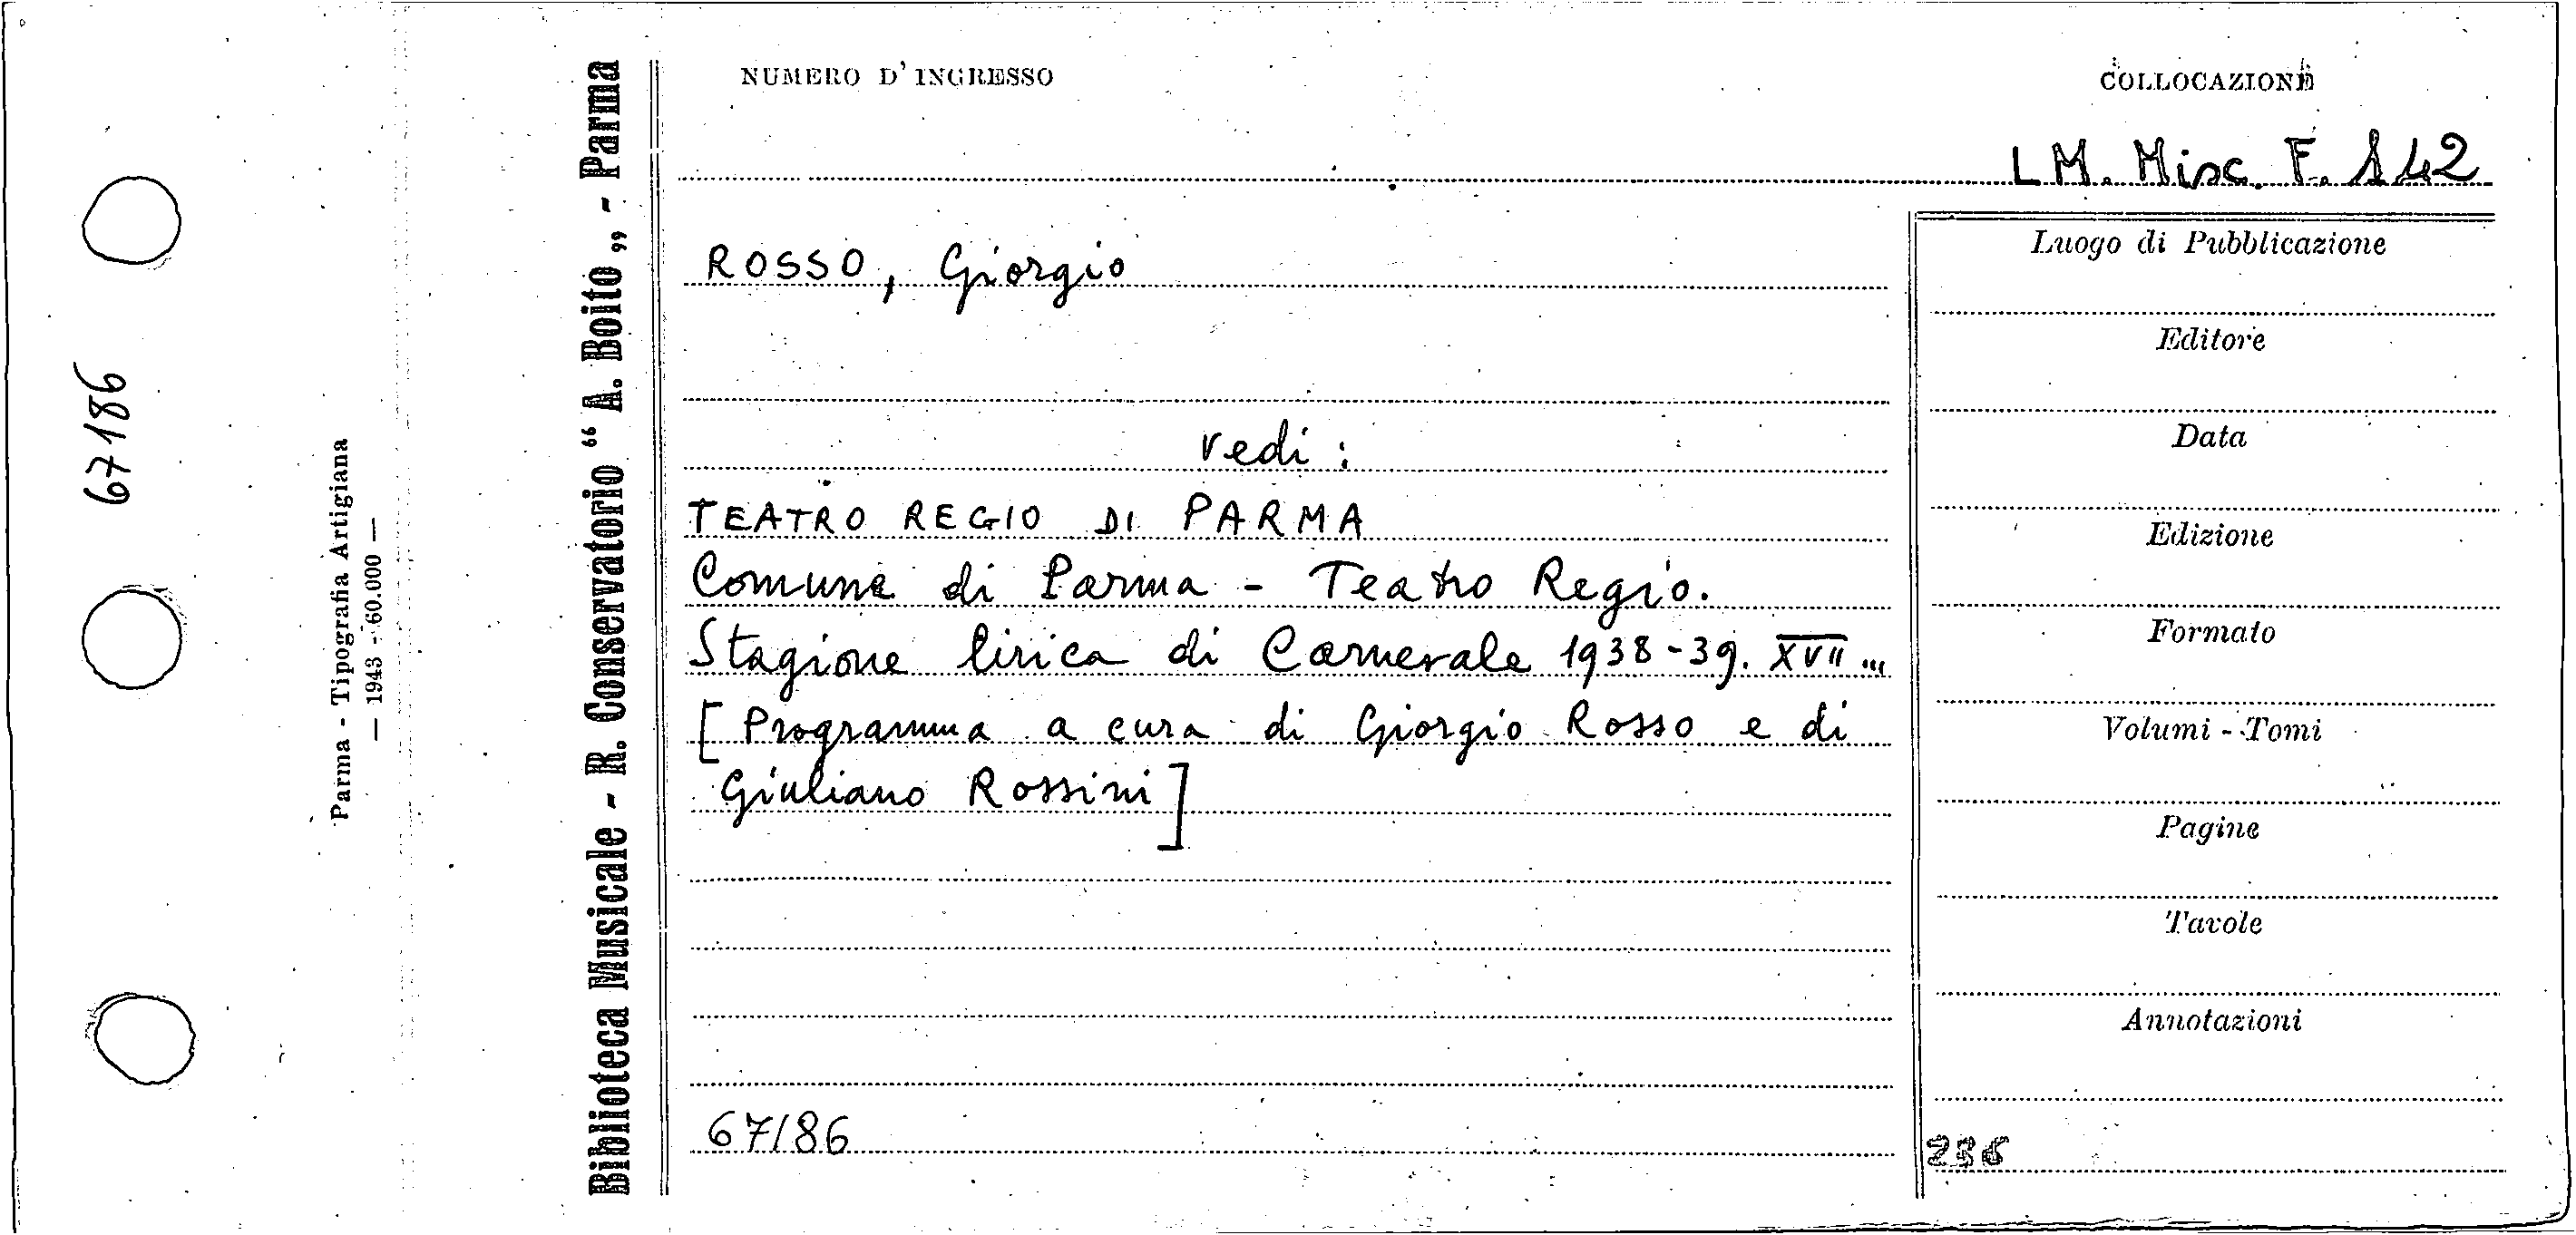 67186
Parma - Tipografia Artigiana
— 1943 - 60.000 —
Biblioteca Musicale - R. Conservatorio “ A. Boito „ - Parma
NUMERO D'INGRESSO
COLLOCAZIONE
LM. Misc. F. 142
ROSSO, Giorgio
vedi:
TEATRO REGIO DI PARMA
Comune di Parma - Teatro Regio.
Stagione lirica di Carnevale 1938-39. XVII ...
[Programma a cura di Giorgio Rosso e di
Giuliano Rossini]
67186
Luogo di Pubblicazione
Editore
Data
Edizione
Formato
Volumi - Tomi
Pagine
Tavole
Annotazioni